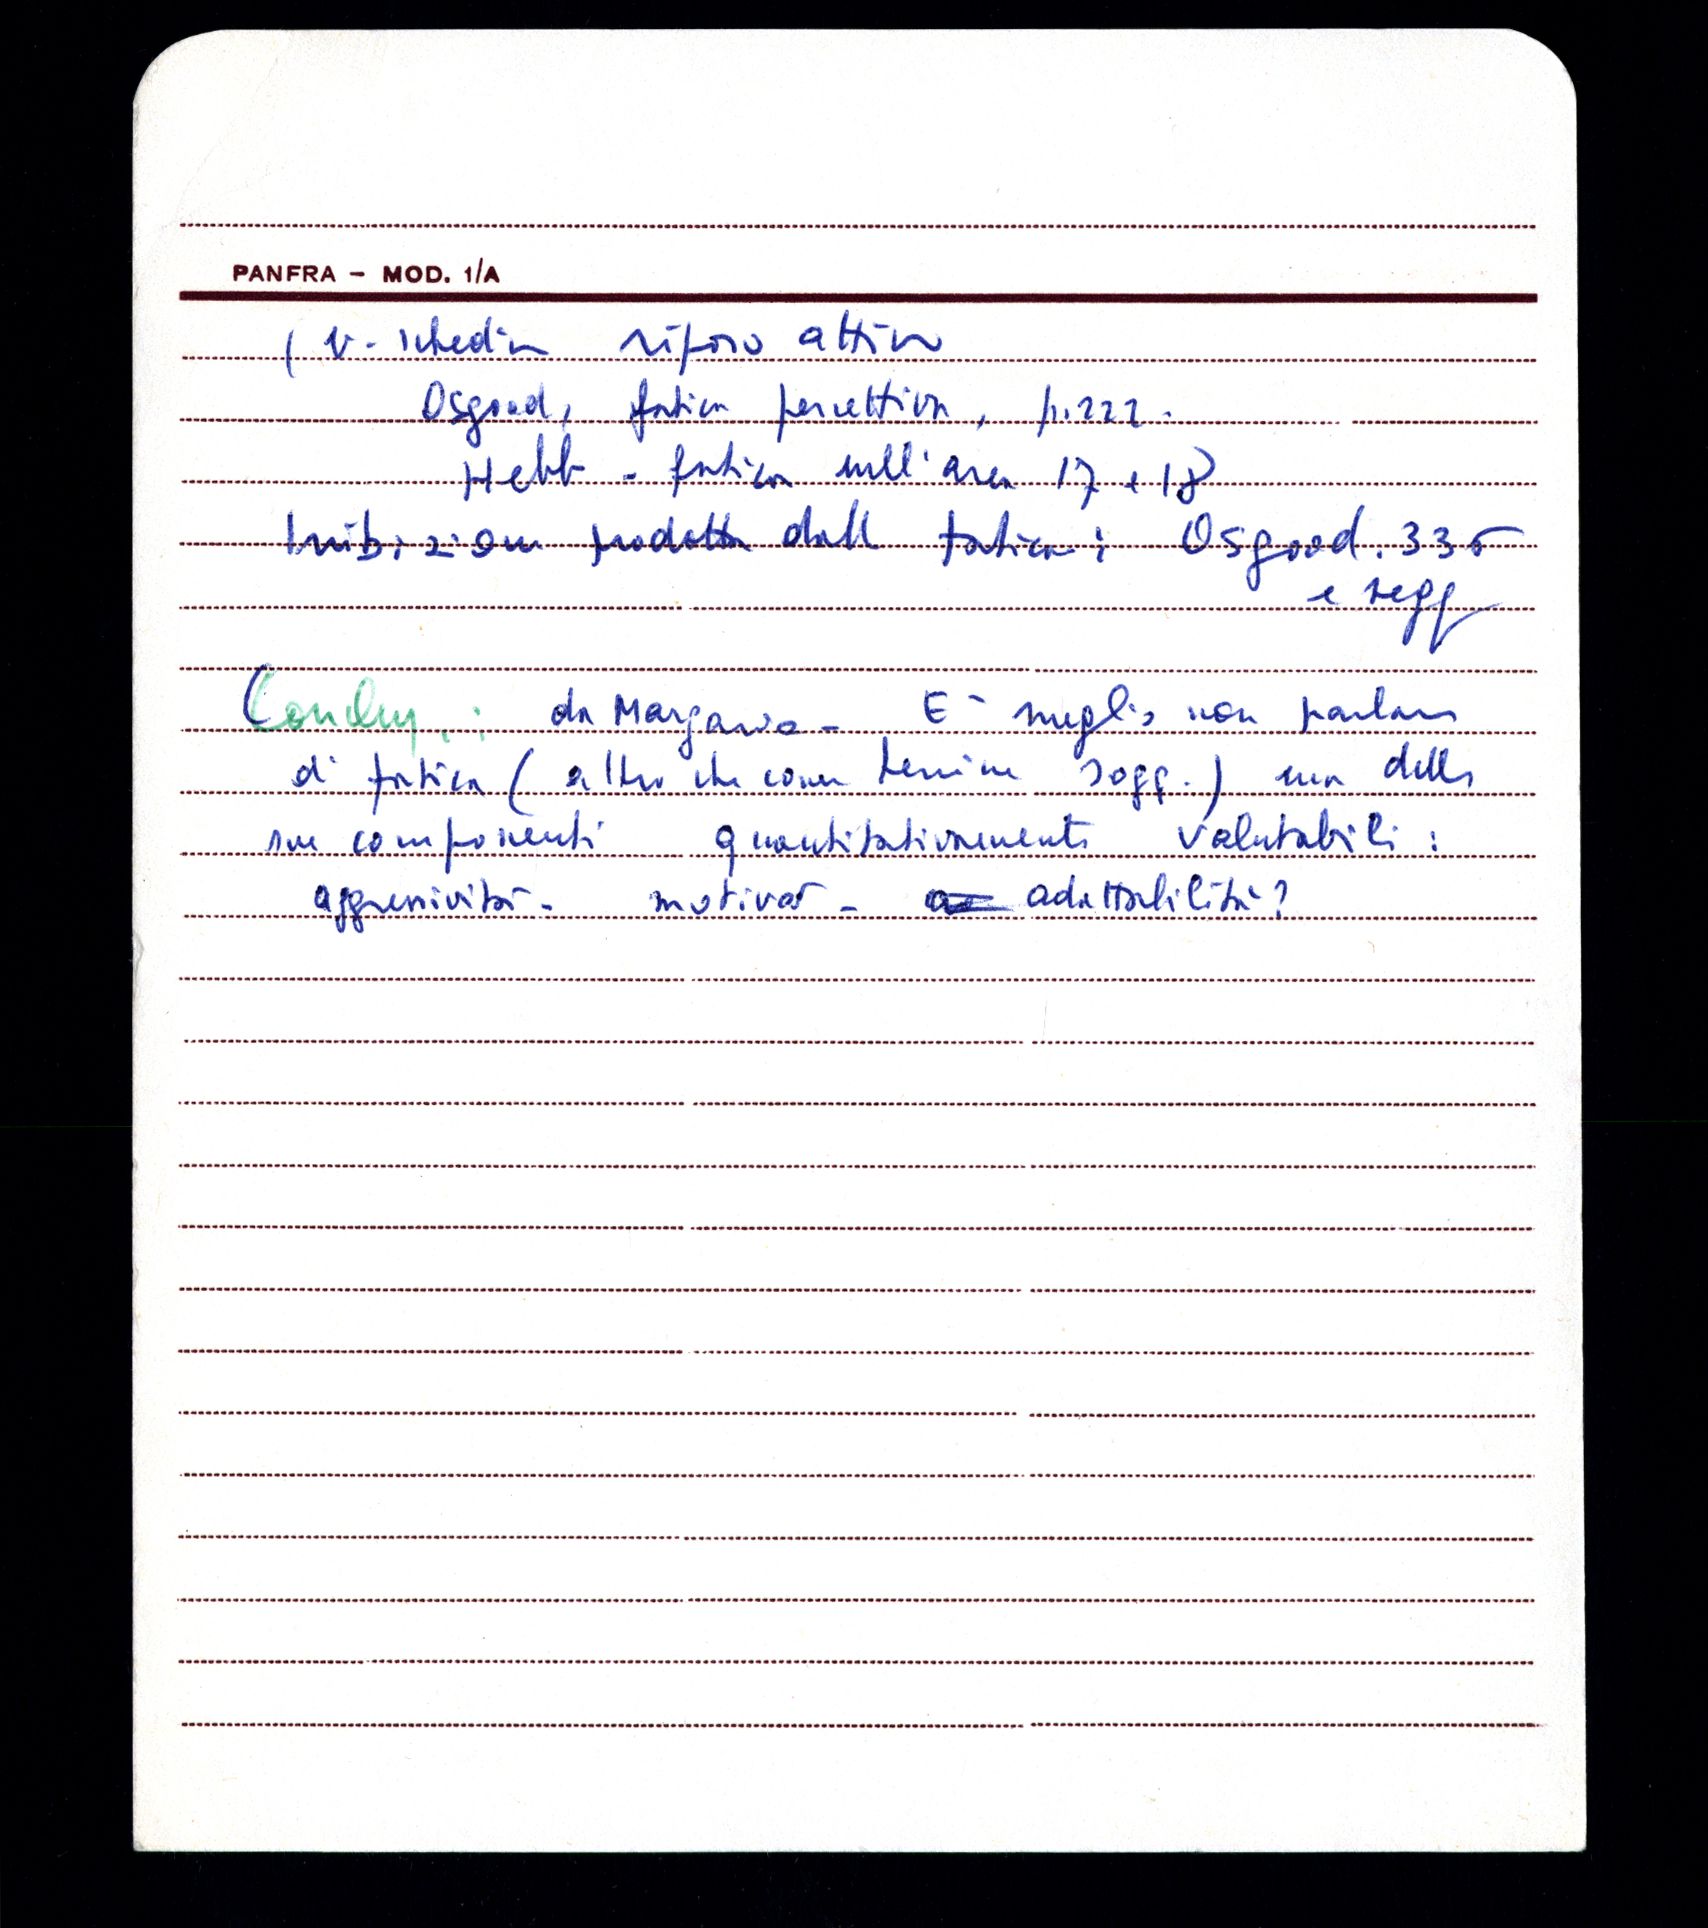 PANFRA - MOD. 1/A
( v. schedina riposo attivo
Osgood, fatica percettiva, p. 222.
Hebb - fatica nell'area 17 e 18
Inibizione prodotta dalla fatica: Osgood. 336
e segg
da Margaria - E' meglio non parlare
di fatica ( altro che come termine sogg.) ma delle
sue componenti quantitativamente valutabili:
aggressività - motivaz - adattabilità?